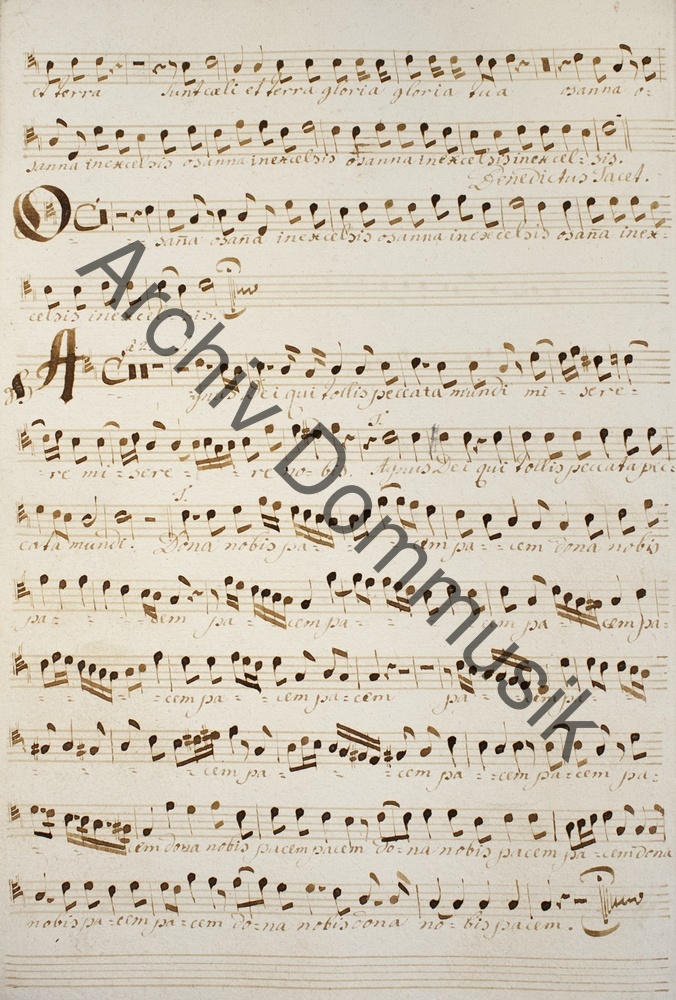 et terra sunt cæli et terra gloria gloria tua osanna o-
sanna in excelsis osanna in excelsis osanna in excelsis in excel-sis.
Benedictus Tacet.
O sana osana in excelsis osanna in excelsis osaña in ex-
celsis in excelsis.
A gnus Dei qui tollis peccata mundi mi- sere-
re mi- sere- re no- bis. Agnus Dei qui tollis peccata pec-
cata mundi. Dona nobis pa- cem pa- cem dona nobis
pa- cem pa- cem pa- cem pa- cem pa-
cem pa- cem pa- cem pa- cem pa-
cem pa- cem pa- cem pa- cem pa-
cem dona nobis pacem pacem do-na nobis pacem pa-cem dona
nobis pa-cem pa-cem do-na nobis dona no-bis pacem.
Archiv Dommusik